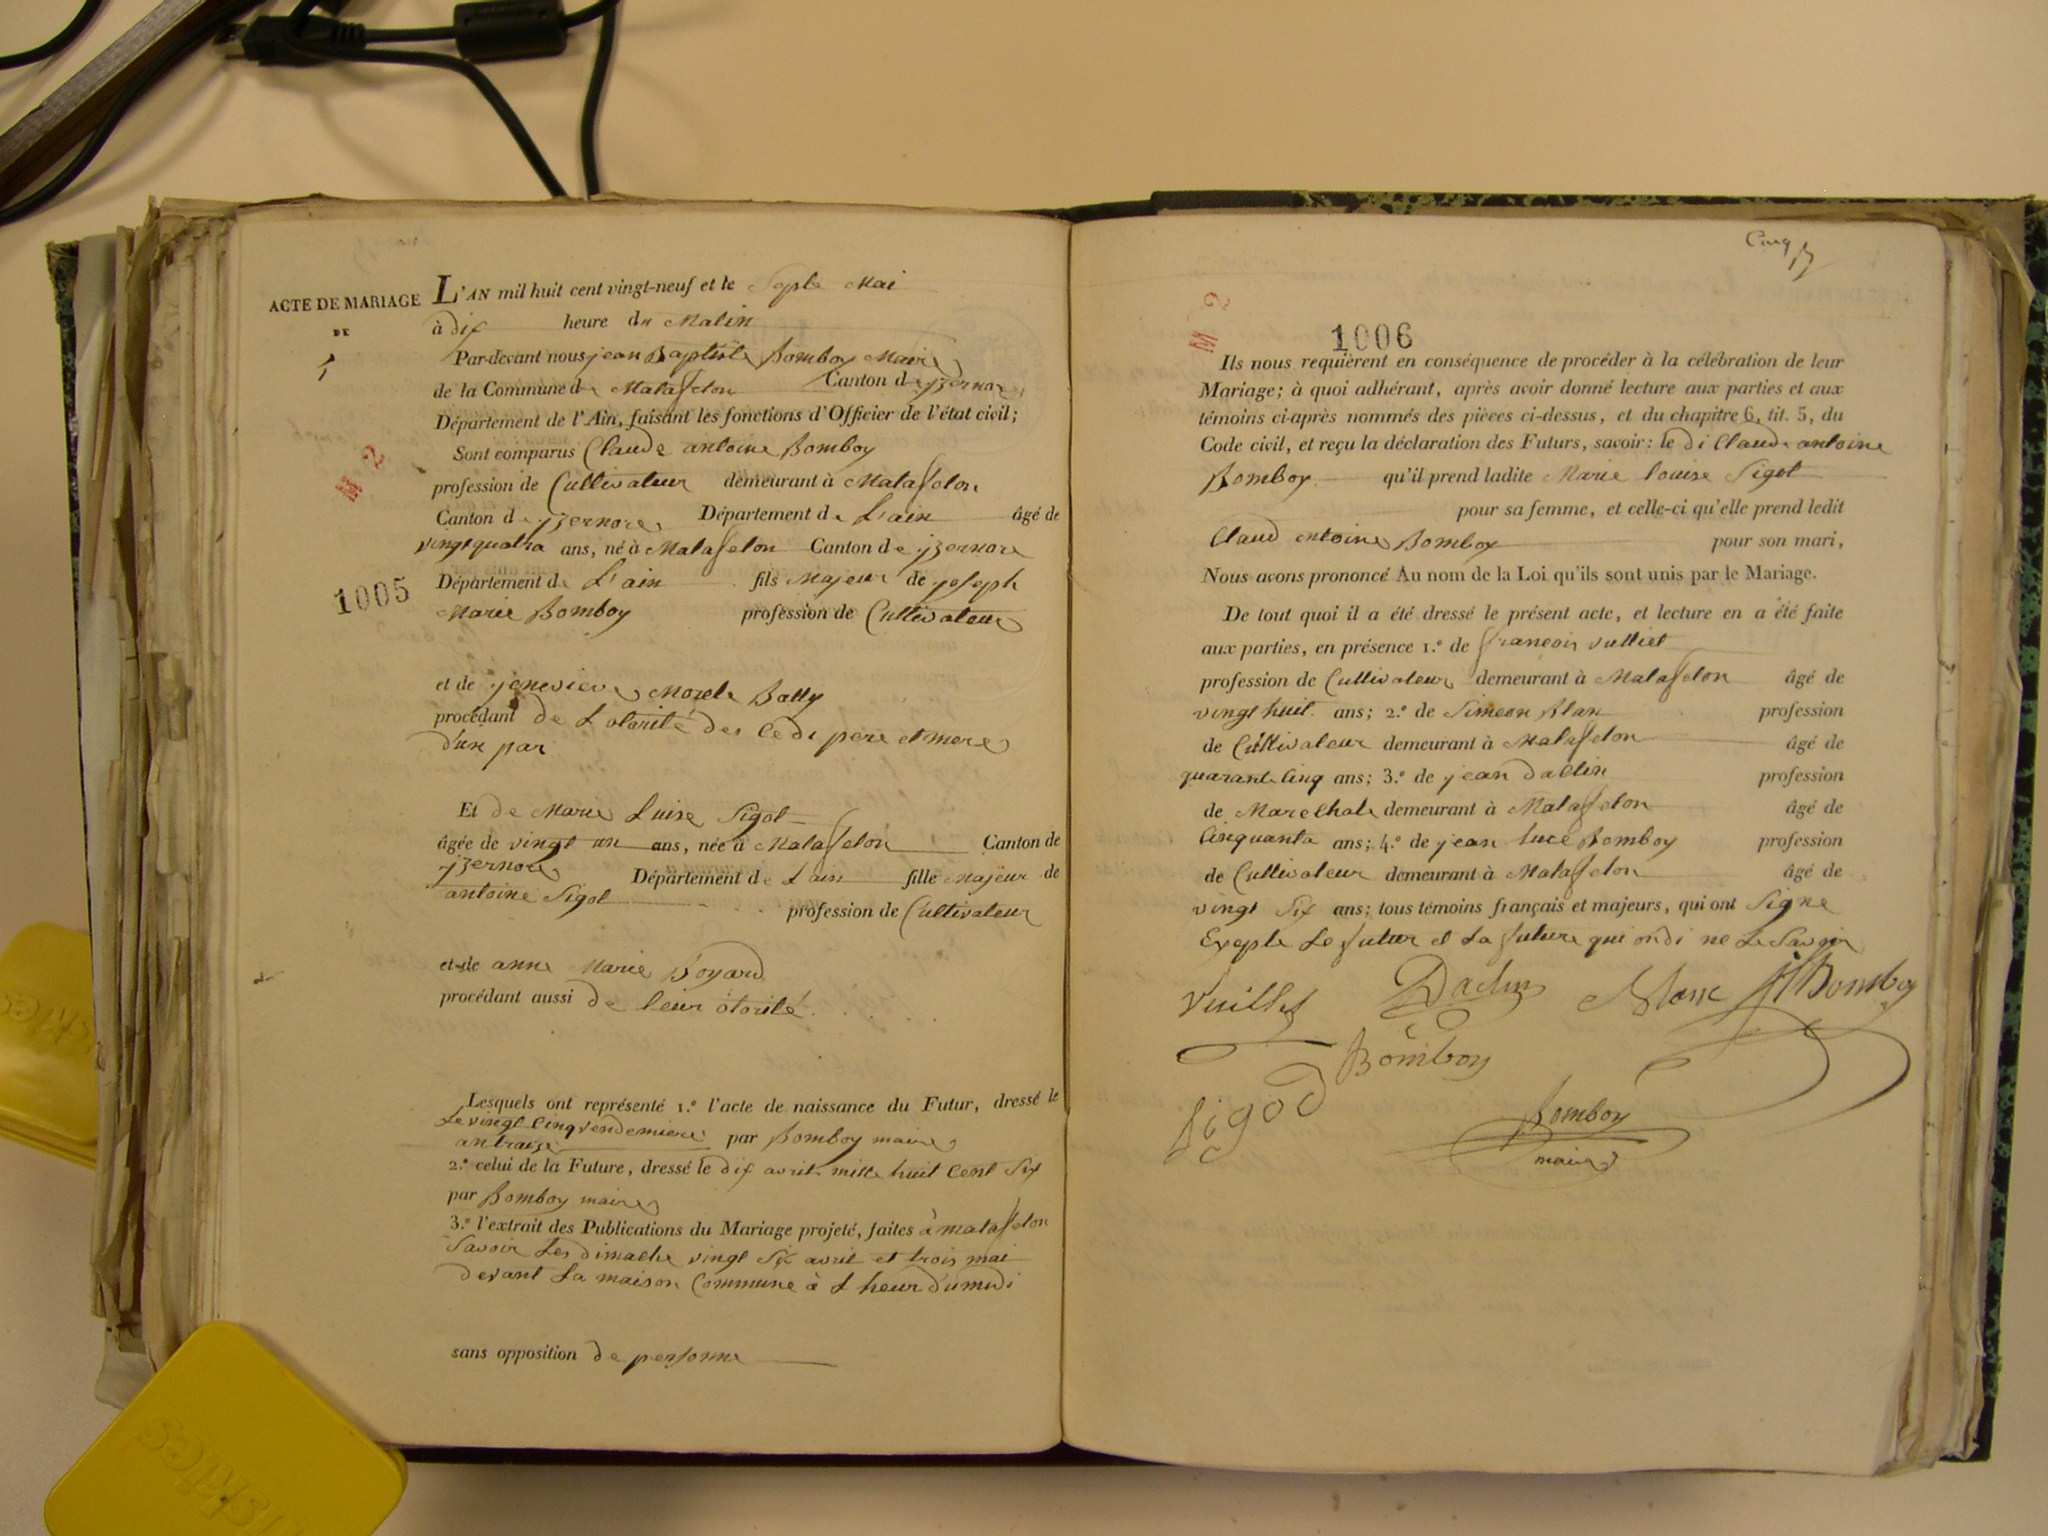 ACTE DE MARIAGE
DE
5
M 2
1005
L'AN mil huit cent vingt-neuf et le Septe Mai
à dix heure du Matin
Par-devant nous jean Baptiste Bomboy Maire
de la Commune de Matafelon Canton de jzernore
Département de l'Ain, faisant les fonctions d'Officier de l'état civil;
Sont comparus Claude antoine Bomboy
profession de Cultivateur demeurant à Matafelon
Canton de jzernore Département de L'ain âgé de
vingt quatra ans, né à Matafelon Canton de jzernore
Département de L'ain fils Majeur de joseph
Marie Bomboy profession de Cultivateur
et de jenevieve Morele Bally
procédant de L otorité des ledi pere et mere
d'un par
Et de Marie Luise Sigot
âgée de vingt un ans, née à Matafelon Canton de
jzernore Département de L'ain fille Majeur de
antoine Sigot profession de Cultivateur
et de anne Marie Boyard
procédant aussi de leur otorité
Lesquels ont représenté 1.º l'acte de naissance du Futur, dressé le
Le vingt Cinq vendemiere
an traize par Bomboy maire
2.º celui de la Future, dressé le dix avril mille huit Cent Six
par Bomboy maire
3.º l'extrait des Publications du Mariage projeté, faites à matafelon
Savoir Les dimache vingt Six avril et trois mai
devant La maison Commune à L heur d'umidi
sans opposition de personne
Cinq
M 2
1006
Ils nous requièrent en conséquence de procéder à la célébration de leur
Mariage; à quoi adhérant, après avoir donné lecture aux parties et aux
témoins ci-après nommés des pièces ci-dessus, et du chapitre 6, tit. 5, du
Code civil, et reçu la déclaration des Futurs, savoir: le di Claude antoine
Bomboy qu'il prend ladite Marie louise Sigot
pour sa femme, et celle-ci qu'elle prend ledit
Claud antoine Bomboy pour son mari,
Nous avons prononcé Au nom de la Loi qu'ils sont unis par le Mariage.
De tout quoi il a été dressé le présent acte, et lecture en a été faite
aux parties, en présence 1.º de francois vulliet
profession de Cultivateur demeurant à Matafelon âgé de
vingt huit ans; 2.º de Simeon Blan profession
de Cultivateur demeurant à Matafelon âgé de
quarante Cinq ans; 3.º de jean daclin profession
de Marechale demeurant à Matafelon âgé de
Cinquanta ans; 4.º de jean luce Bomboy profession
de Cultivateur demeurant à Matafelon âgé de
vingt Six ans; tous témoins français et majeurs, qui ont Signe
Exepte Le futur et La future qui on di ne Le Savoir
Vuillet Daclin Blanc Bomboy
Bomboy
Sigod
Bomboy
maire